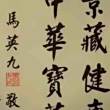 藏健
中華寶
馬英九敬